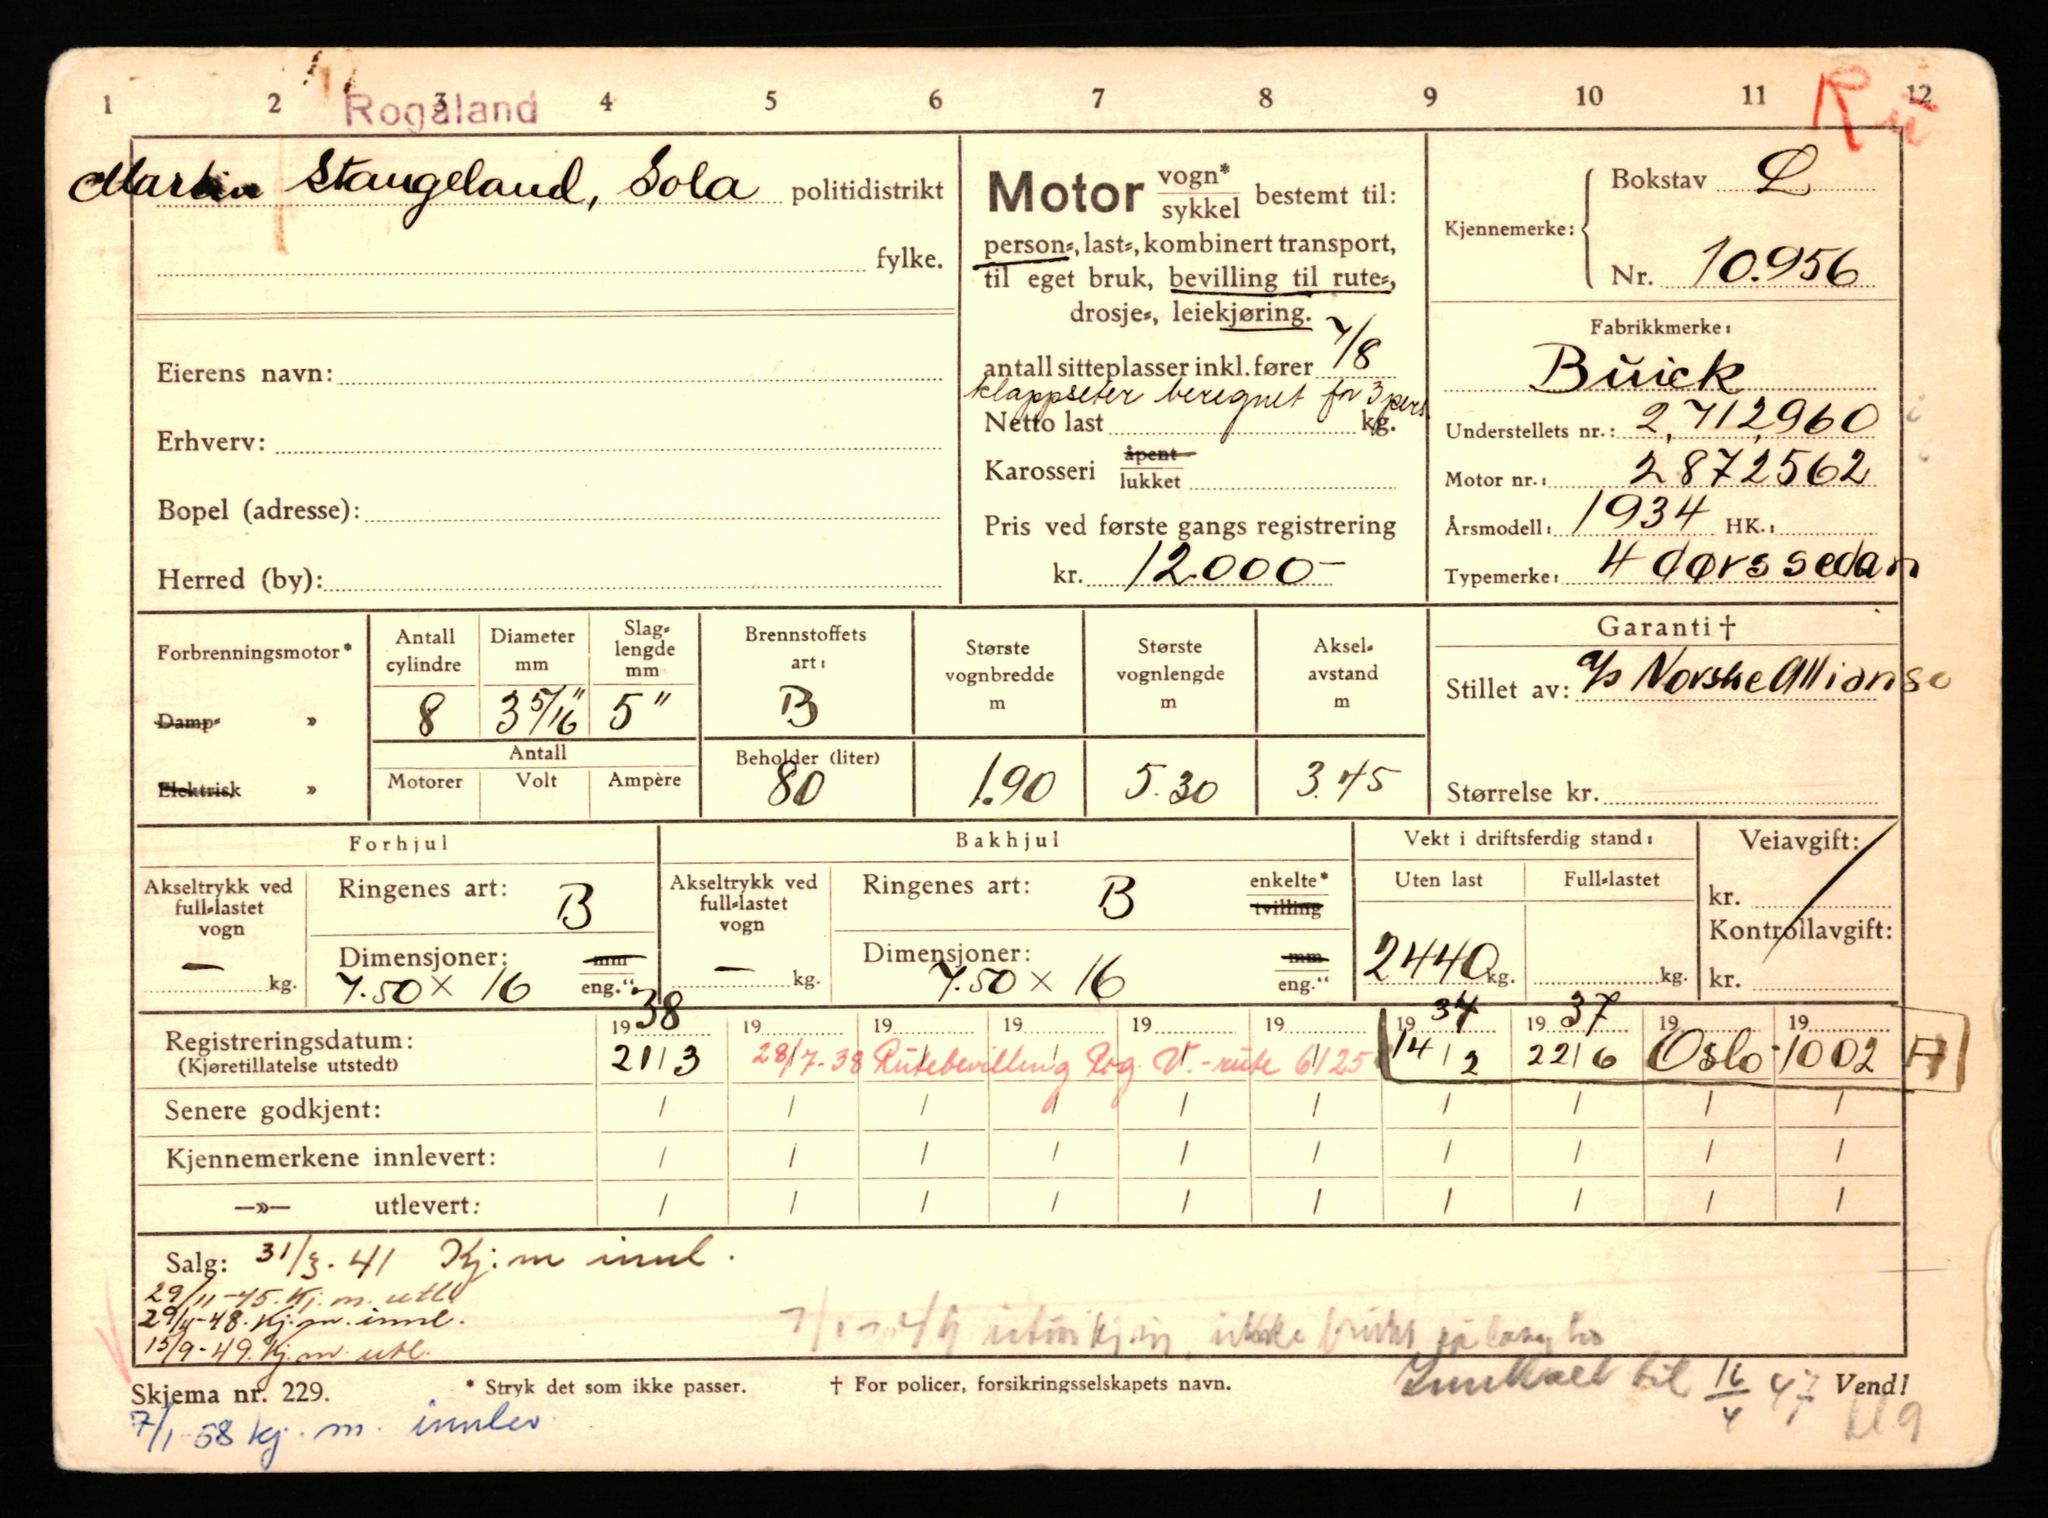 1 2 3 4 5 6 7 8 9 10 11 12
Rogaland
R
Martin Stangeland, Sola politidistrikt
fylke.
Eierens navn:
Erhverv:
Bopel (adresse):
Herred (by):
Motor vogn* sykkel bestemt til:
person-, last-, kombinert transport,
til eget bruk, bevilling til rute-,
drosje-, leiekjøring.
antall sitteplasser inkl. fører 7/8
klappseter beregnet for 3 pers
Netto last kg.
Karosseri åpent lukket
Pris ved første gangs registrering
kr. 12000-
Kjennemerke: Bokstav L
Nr. 10.956
Fabrikkmerke:
Buick
Understellets nr.: 2,712,960
Motor nr.: 2872562
Årsmodell: 1934 HK.:
Typemerke: 4 dørs sedan
Forbrenningsmotor*
Damp- »
Elektrisk »
Antall cylindre 8
Diameter mm 3 5/16"
Slag-lengde mm 5"
Antall
Motorer Volt Ampère
Brennstoffets art: B
Beholder (liter) 80
Største vognbredde m 1.90
Største vognlengde m 5.30
Aksel-avstand m 3.45
Garanti †
Stillet av: A/S Norske Allianse
Størrelse kr.
Forhjul
Akseltrykk ved full-lastet vogn — kg.
Ringenes art: B
Dimensjoner: mm eng."
7.50 × 16
Bakhjul
Akseltrykk ved full-lastet vogn — kg.
Ringenes art: B enkelte* tvilling
Dimensjoner: mm eng."
7.50 × 16
Vekt i driftsferdig stand:
Uten last Full-lastet
2440 kg. kg.
Veiavgift:
kr.
Kontrollavgift:
kr.
Registreringsdatum: 1938 19 19 19 19 19 1934 1937 19 19
(Kjøretillatelse utstedt) 21/3 28/7-38 Rutebevilling Rog. V.-rute 6125 14/2 22/6 Oslo-1002 A
Senere godkjent: / / / / / / / / / /
Kjennemerkene innlevert: / / / / / / / / / /
—»— utlevert: / / / / / / / / / /
Salg: 31/3-41 Kj: m innl.
29/11-45. Kj. m. utl
29/4-48. Kj. m. innl.
15/9-49. Kj. m. utl.
Innkalt til 16/4 47
Skjema nr. 229. * Stryk det som ikke passer. † For policer, forsikringsselskapets navn. Vend!
7/1-58 kj. m. innlev.